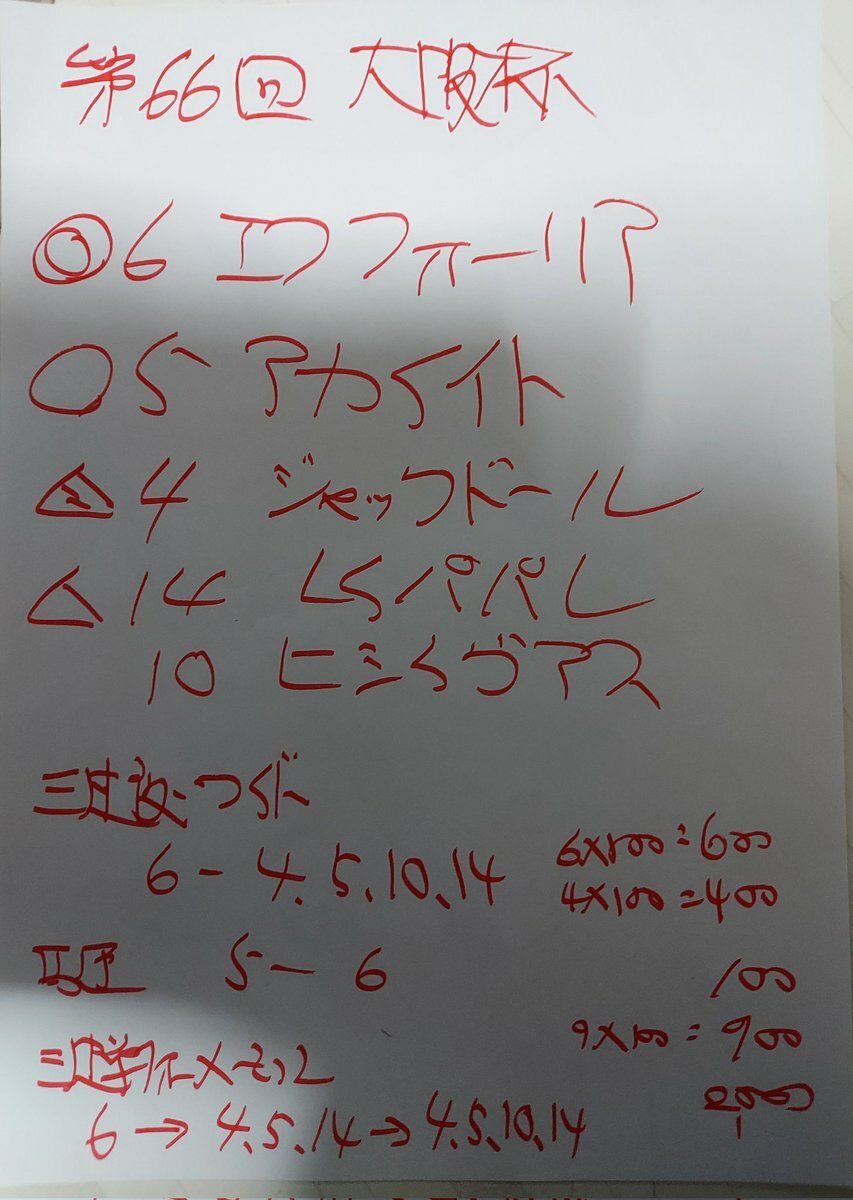 第66回 大阪杯
◎6 エフフォーリア
○5 アカイイト
▲4 ジャックドール
△14 レイパパレ
10 ヒシイグアス
三連複・ワイド
6-4.5.10.14
6×100=600
4×100=400
馬連 5-6
100
三連単フォーメーション
9×100=900
6→4.5.14→4.5.10.14